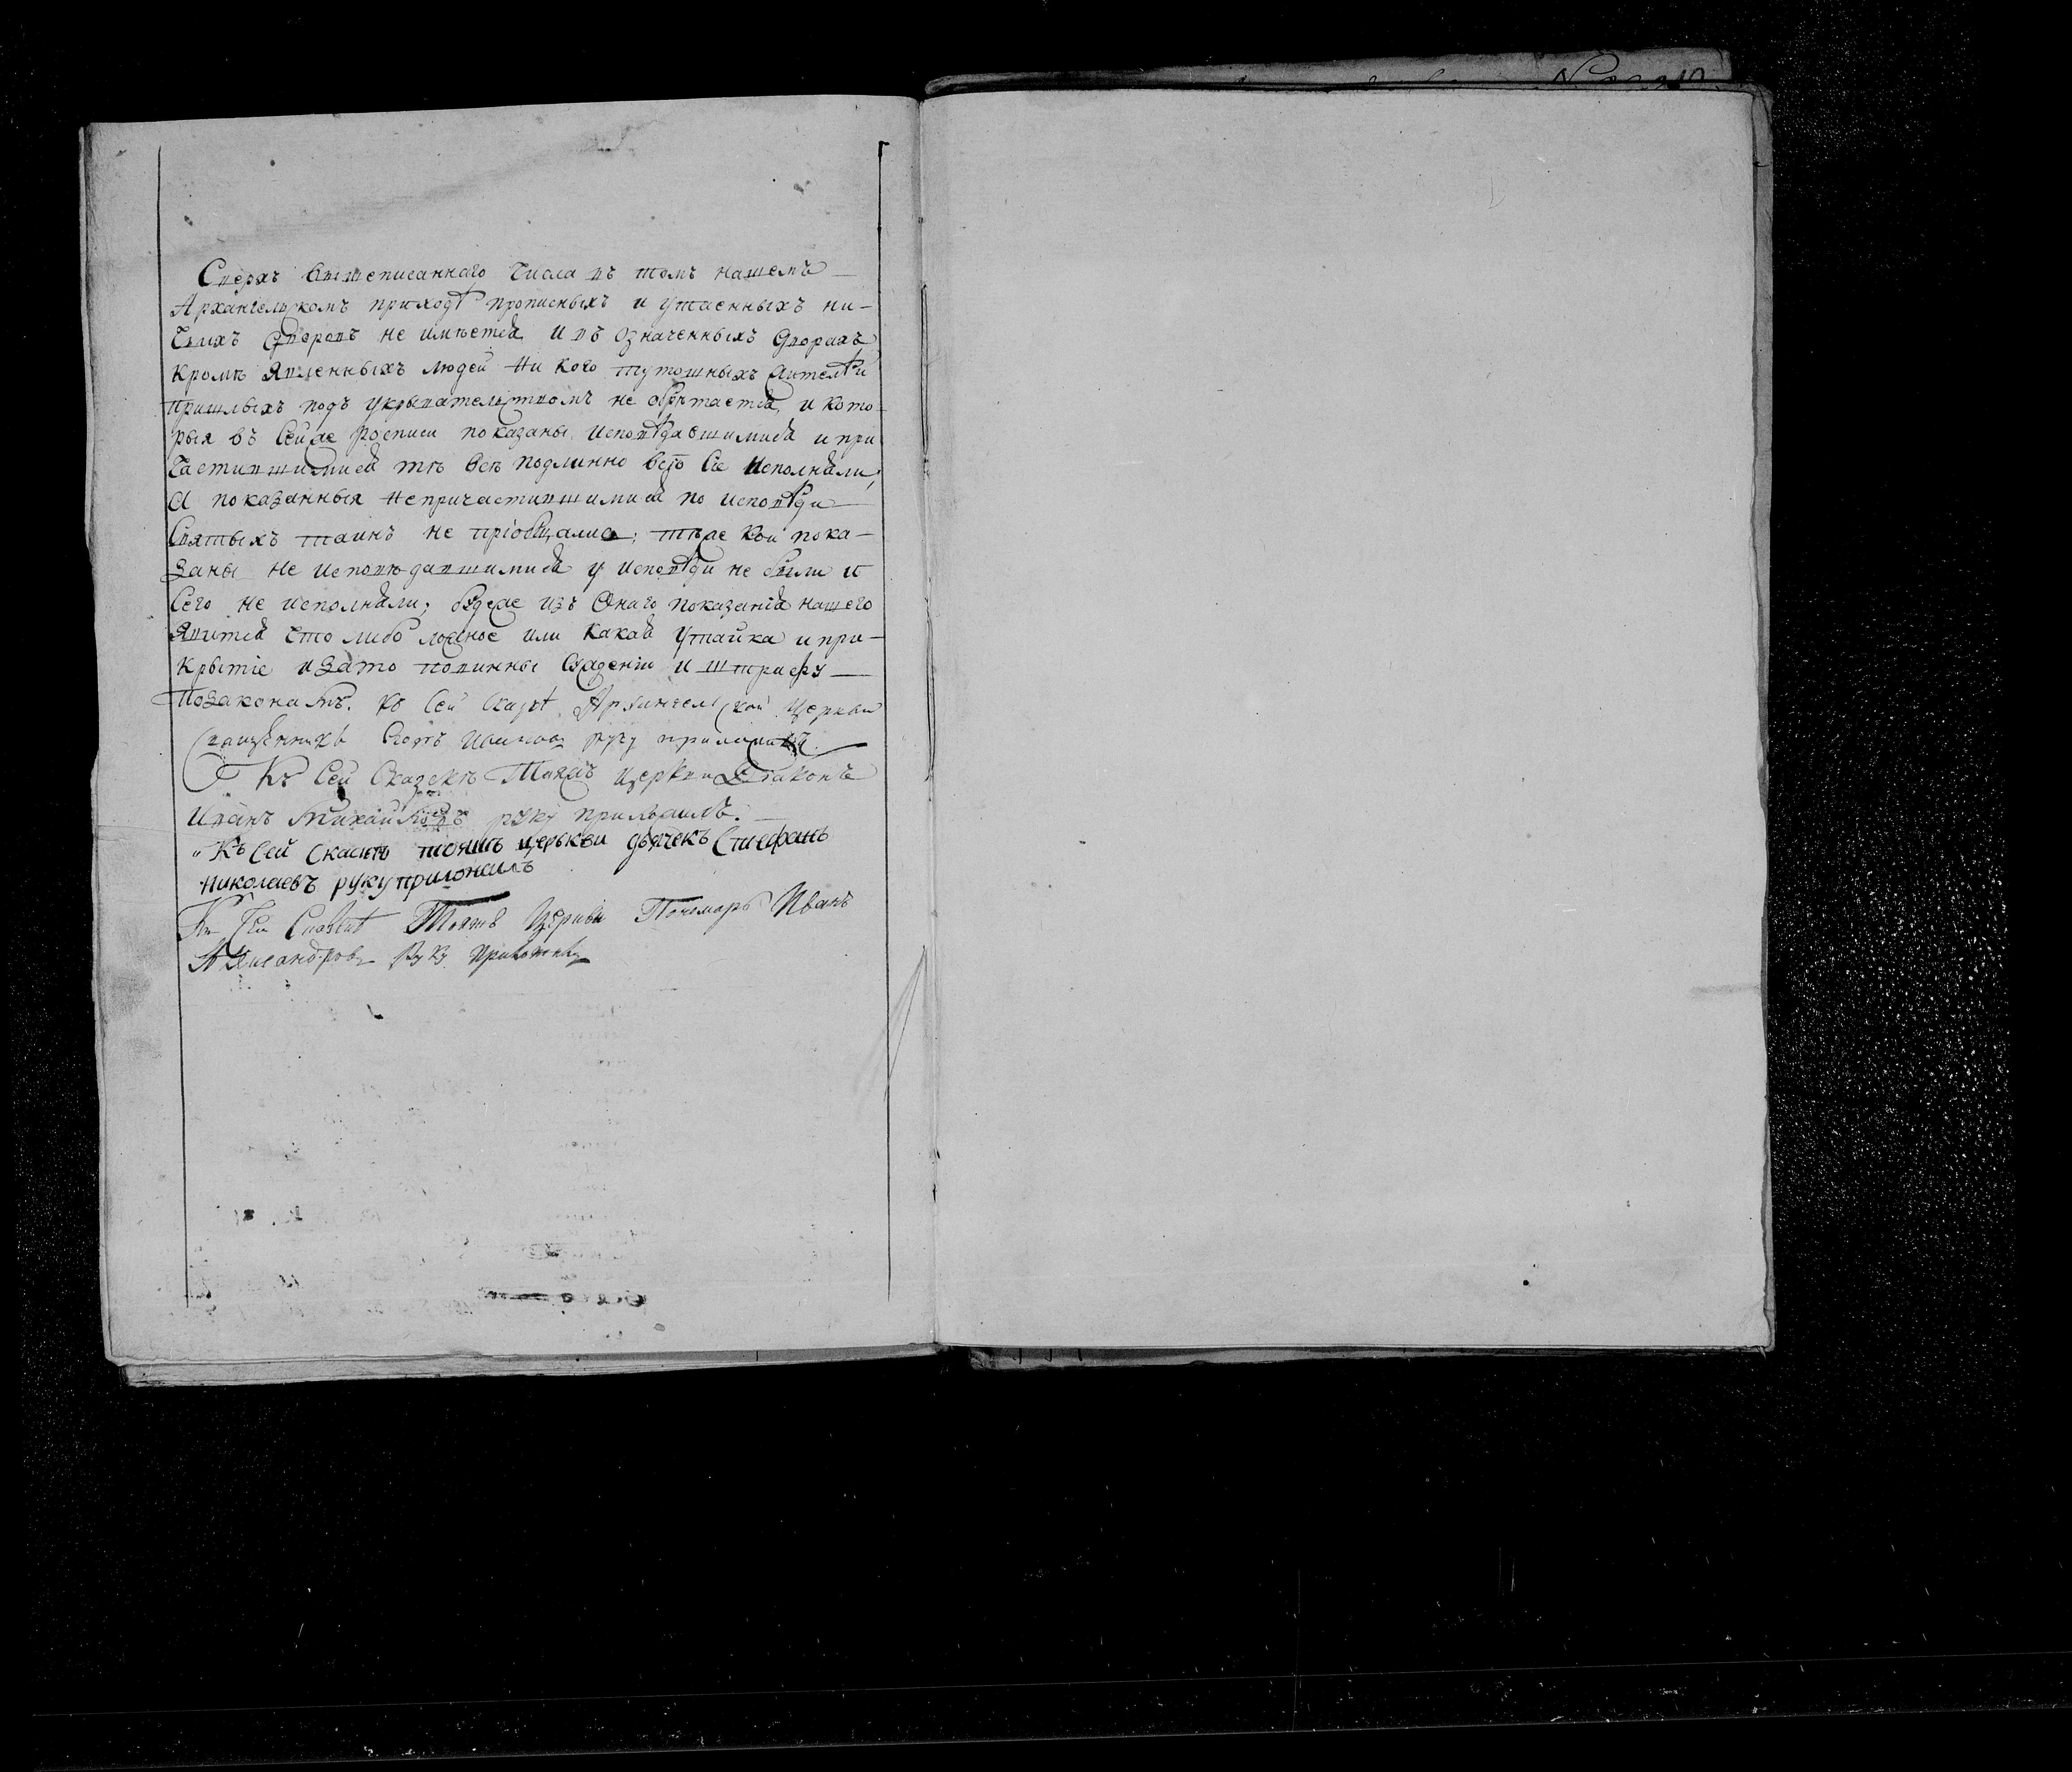 Сверхъ вышеписаннаго числа въ томъ нашемъ
Архангельскомъ приходѣ прописныхъ и утаенныхъ ни-
чьихъ дворовъ не имѣется и въ означенныхъ дворахъ
кромѣ явленныхъ людей ни кого тутошныхъ жителей и
пришлыхъ подъ укрывательствомъ не обрѣтается, и кото-
рыя въ сей же росписи показаны исповѣдавшимися и при
частившимися тѣ всѣ подлинно все то сїе исполняли;
а показанныя непричастившимися по исповѣди
святыхъ таинъ не прїобщались; тѣже кои пока-
заны не исповѣдавшимися у исповѣди не были и
сего не исполняли; буде же изъ онаго показанїя нашего
явится что либо ложное или какая утайка и при-
крытїе и зато повинны суждению и штрафу
по законамъ. Къ сей скаскѣ Архангельской церкви
священникъ Ивановъ руку приложилъ.
Къ сей сказскѣ тояжъ церкви дїаконъ
Иванъ Михайловъ руку приложилъ.
Къ сей скаскѣ тояшъ церькви дьячекъ Стефанъ
Николаевъ руку приложилъ
Къ сей сказкѣ тояжъ церкви пономарь Иванъ
Александровъ руку приложилъ